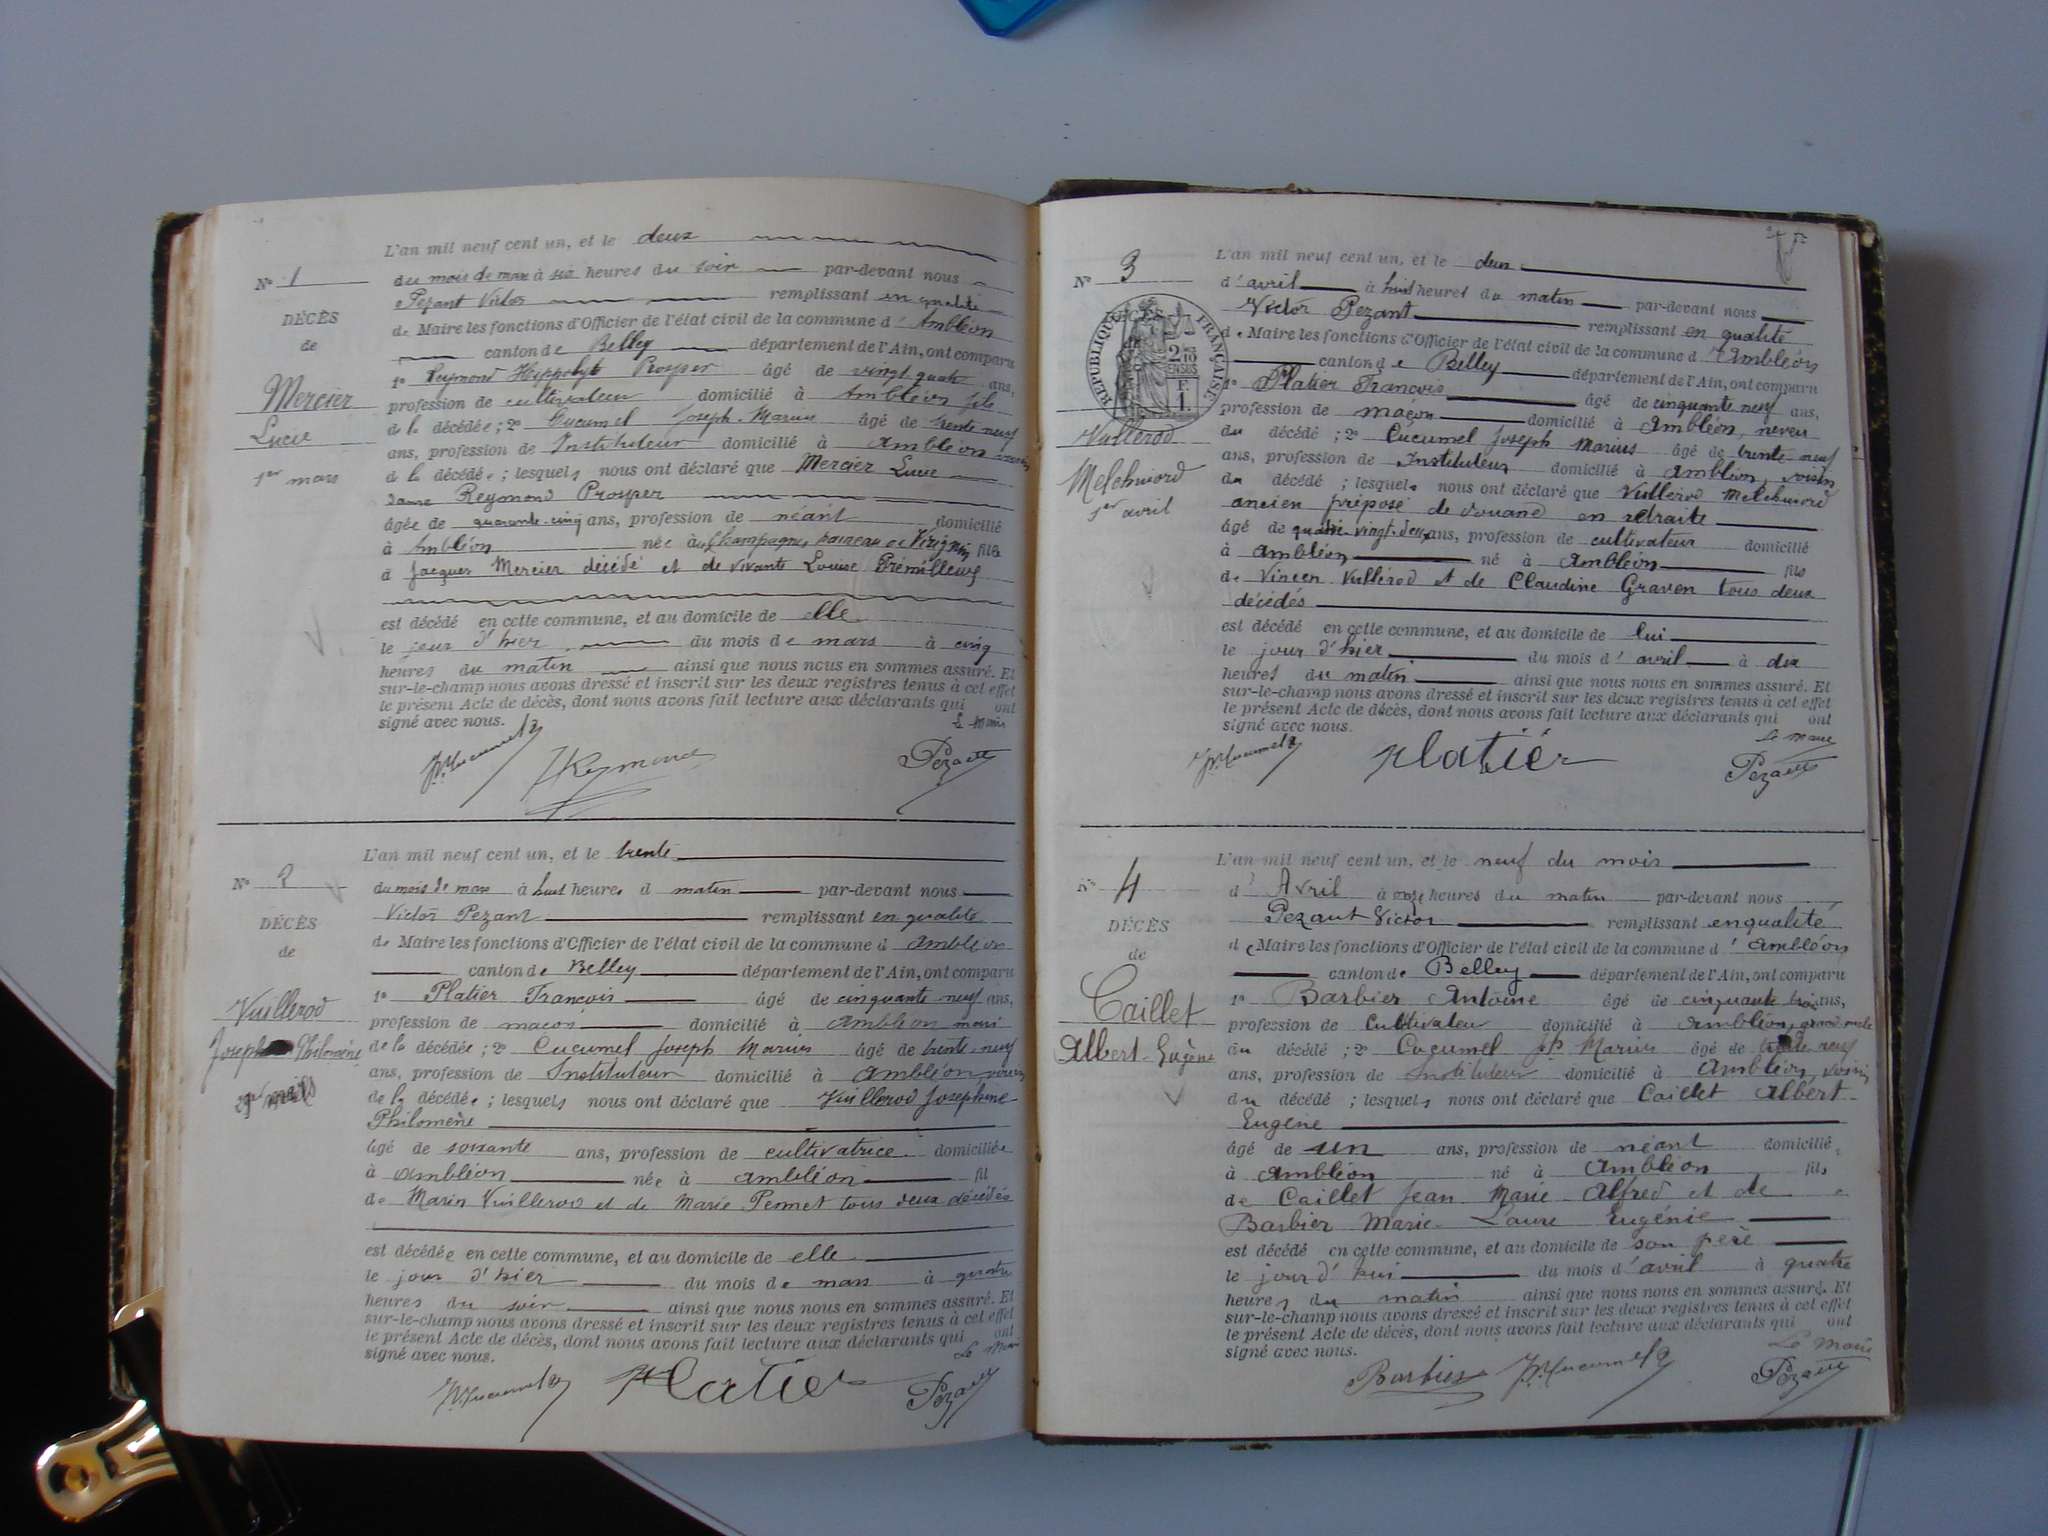 L'an mil neuf cent un, et le deux
N° 1
du mois de mars à six heures du soir par-devant nous
Pezant Victor remplissant en qualité
DÉCÈS
de Maire les fonctions d'Officier de l'état civil de la commune d'Ambléon
de
canton de Belley département de l'Ain, ont comparu
1° Reymond Hyppolyte Prosper âgé de vingt quatre ans,
Mercier
profession de cultivateur domicilié à Ambléon fils
Lucie
de la décédée; 2° Cucumel Joseph-Marius âgé de trente neuf
ans, profession de Instituteur domicilié à Ambléon voisin
1er mars
de la décédée; lesquels nous ont déclaré que Mercier Lucie
dame Reymond Prosper
âgée de quarante-cinq ans, profession de néant domicilié
à Ambléon née à Champagne hameau de Virignin fille
d Jacques Mercier décédé et de vivante Louise Prémilleux
est décédé en cette commune, et au domicile de elle
le jour d'hier du mois de mars à cinq
heures du matin ainsi que nous nous en sommes assuré. Et
sur-le-champ nous avons dressé et inscrit sur les deux registres tenus à cet effet
le présent Acte de décès, dont nous avons fait lecture aux déclarants qui ont
signé avec nous.
Le Maire
JMCucumel HReymond Pezant
L'an mil neuf cent un, et le trente
N° 2
du mois de mars à huit heures d matin par-devant nous
Victor Pezant remplissant en qualité
DÉCÈS
de Maire les fonctions d'Officier de l'état civil de la commune d Ambléon
de
canton de Belley département de l'Ain, ont comparu
1° Platier François âgé de cinquante neuf ans,
Vuillerod
profession de maçon domicilié à Ambléon mari
Joseph Philomène
de la décédée; 2° Cucumel Joseph Marius âgé de trente-neuf
ans, profession de Instituteur domicilié à Ambléon, voisin
29 mars
de la décédée; lesquels nous ont déclaré que Vuillerod Josephine
Philomène
âgé de soixante ans, profession de cultivatrice domiciliée
à Ambléon née à Ambléon fil
de Marin Vuillerod et de Marie Pennet tous deux décédés
est décédée en cette commune, et au domicile de elle
le jour d'hier du mois de mars à quatre
heures du soir ainsi que nous nous en sommes assuré. Et
sur-le-champ nous avons dressé et inscrit sur les deux registres tenus à cet effet
le présent Acte de décès, dont nous avons fait lecture aux déclarants qui ont
signé avec nous.
Le Maire
JMCucumel Platier Pezant
L'an mil neuf cent un, et le deux
N° 3
d'avril à huit heures du matin par-devant nous
Victor Pezant remplissant en qualité
DÉCÈS
RÉPUBLIQUE FRANÇAISE
2/10 EN SUS
F. 1.
de Maire les fonctions d'Officier de l'état civil de la commune d'Ambléon
canton de Belley département de l'Ain, ont comparu
1° Platier François âgé de cinquante neuf ans,
profession de maçon domicilié à Ambléon, neveu
Vuillerod
du décédé; 2° Cucumel Joseph Marius âgé de trente-neuf
ans, profession de Instituteur domicilié à Ambléon, voisin
Melchniord
du décédé; lesquels nous ont déclaré que Vullerod Melchniord
1er avril
ancien préposé de douane en retraite
âgé de quatre-vingt-deux ans, profession de cultivateur domicilié
à Ambléon né à Ambléon fils
de Vincen Vullérod et de Claudine Graven tous deux
décédés
est décédé en cette commune, et au domicile de lui
le jour d'hier du mois d'avril à dix
heures du matin ainsi que nous nous en sommes assuré. Et
sur-le-champ nous avons dressé et inscrit sur les deux registres tenus à cet effet
le présent Acte de décès, dont nous avons fait lecture aux déclarants qui ont
signé avec nous.
Le maire
JMCucumel Platier Pezant
L'an mil neuf cent un, et le neuf du mois
N° 4
d'Avril à onze heures du matin par-devant nous
Pezant Victor remplissant en qualité
DÉCÈS
de Maire les fonctions d'Officier de l'état civil de la commune d'Ambléon
de
canton de Belley département de l'Ain, ont comparu
1° Barbier Antoine âgé de cinquante trois ans,
Caillet
profession de Cultivateur domicilié à Ambléon, grand oncle
Albert-Eugène
du décédé; 2° Cucumel Jph Marius âgé de trente-neuf
ans, profession de Instituteur domicilié à Ambléon, voisin
du décédé; lesquels nous ont déclaré que Caillet Albert-
Eugène
âgé de un ans, profession de néant domicilié
à Ambléon né à Ambléon fils
de Caillet Jean Marie Alfred et de
Barbier Marie-Laure Eugénie
est décédé en cette commune, et au domicile de son père
le jour d'hui du mois d'avril à quatre
heures du matin ainsi que nous nous en sommes assuré. Et
sur-le-champ nous avons dressé et inscrit sur les deux registres tenus à cet effet
le présent Acte de décès, dont nous avons fait lecture aux déclarants qui ont
signé avec nous.
Le Maire
Barbier JMCucumel Pezant